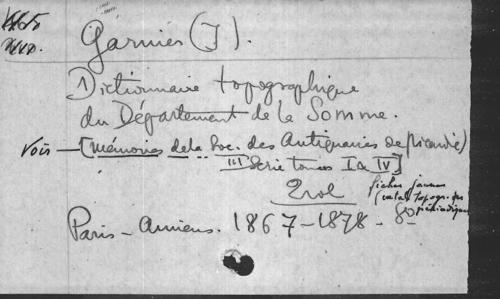 Garnier (J).
Dictionnaire topographique
du Département de la Somme.
Vois — [Mémoires de la Soc. des Antiquaires de Picardie)
III Serie tomes I à IV]
2 vol
fiches jaunes
topogr.
périodiques
Paris - Amiens. 1867-1878. 8°